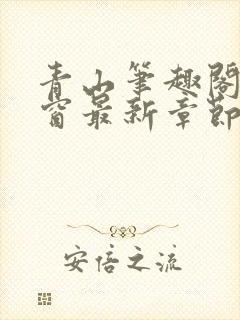 青山笔趣阁
窗最新章节
安倍之流